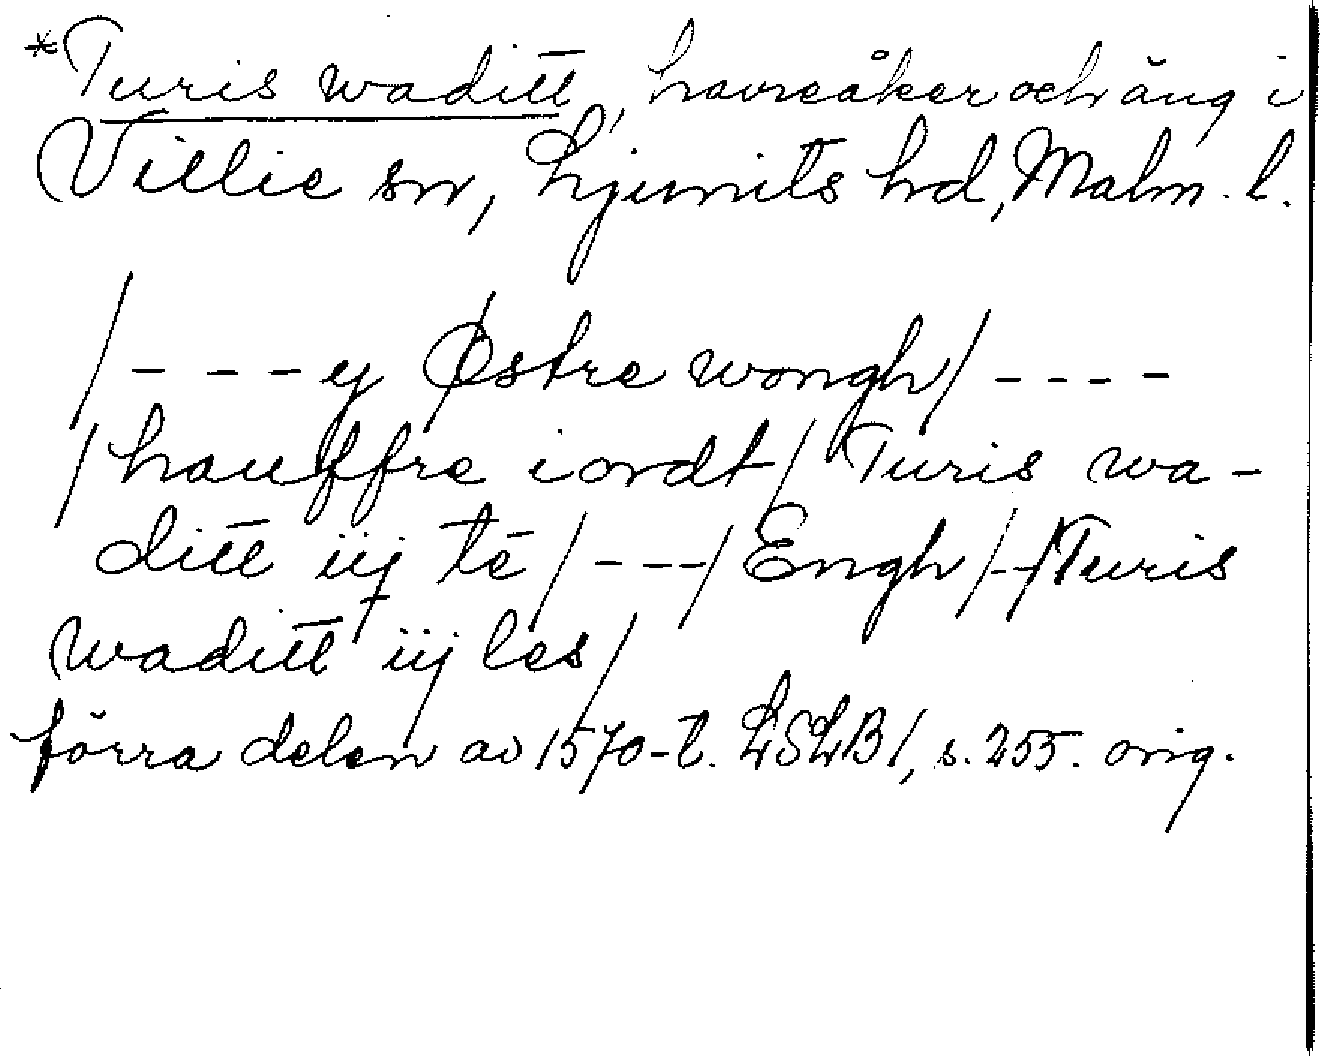 *Turis waditt, havreåker och äng i
Villie sn, Ljunits hd, Malm. l.
/- - - y Østre wongh/ - - - -
/hauffre iordt/ Turis wa-
ditt iij tē /- - -/ Engh /- -/Turis
waditt iij les/
förra delen av 1570-t. LSLB1, s. 255. orig.